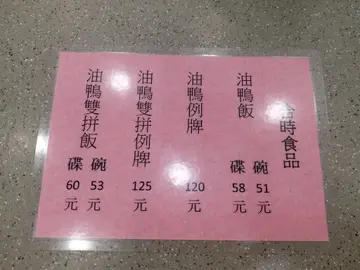 合時食品
油鴨飯
碗 51 元
碟 58 元
油鴨例牌
120 元
油鴨雙拼例牌
125 元
油鴨雙拼飯
碗 53 元
碟 60 元